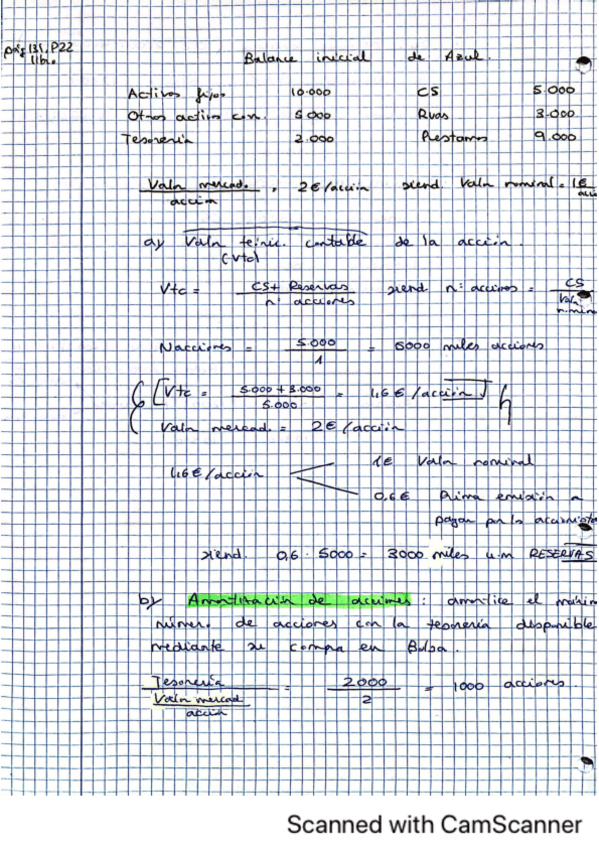 pág 131, P22
libro
Balance inicial de Azul.
Activos fijos 10.000 CS 5.000
Otros activos con. 5.000 Rvas 3.000
Tesorería 2.000 Prestamos 9.000
Valor mercad. = 2€/acción siend. Valor nominal = 1€
acción acció
a) Valor teóric. contable de la acción.
(Vtc)
Vtc = CS + Reservas siend nº acciones = CS
nº acciones Valor
nomina
Nacciones = 5.000 = 5000 miles acciones
1
Vtc = 5.000 + 3.000 = 1,6 €/acción
5.000
Valor mercad. = 2€/acción
1,6€/acción 1€ Valor nominal
0,6€ Prima emisión a
pagar por lo accionista
siend. 0,6 · 5000 = 3000 miles u.m RESERVAS
b) Amortización de acciones: amortice el máxim
númer. de acciones con la tesorería disponible
mediante su compra en Bolsa.
Tesorería = 2000 = 1000 acciones
Valor mercad 2
acción
Scanned with CamScanner